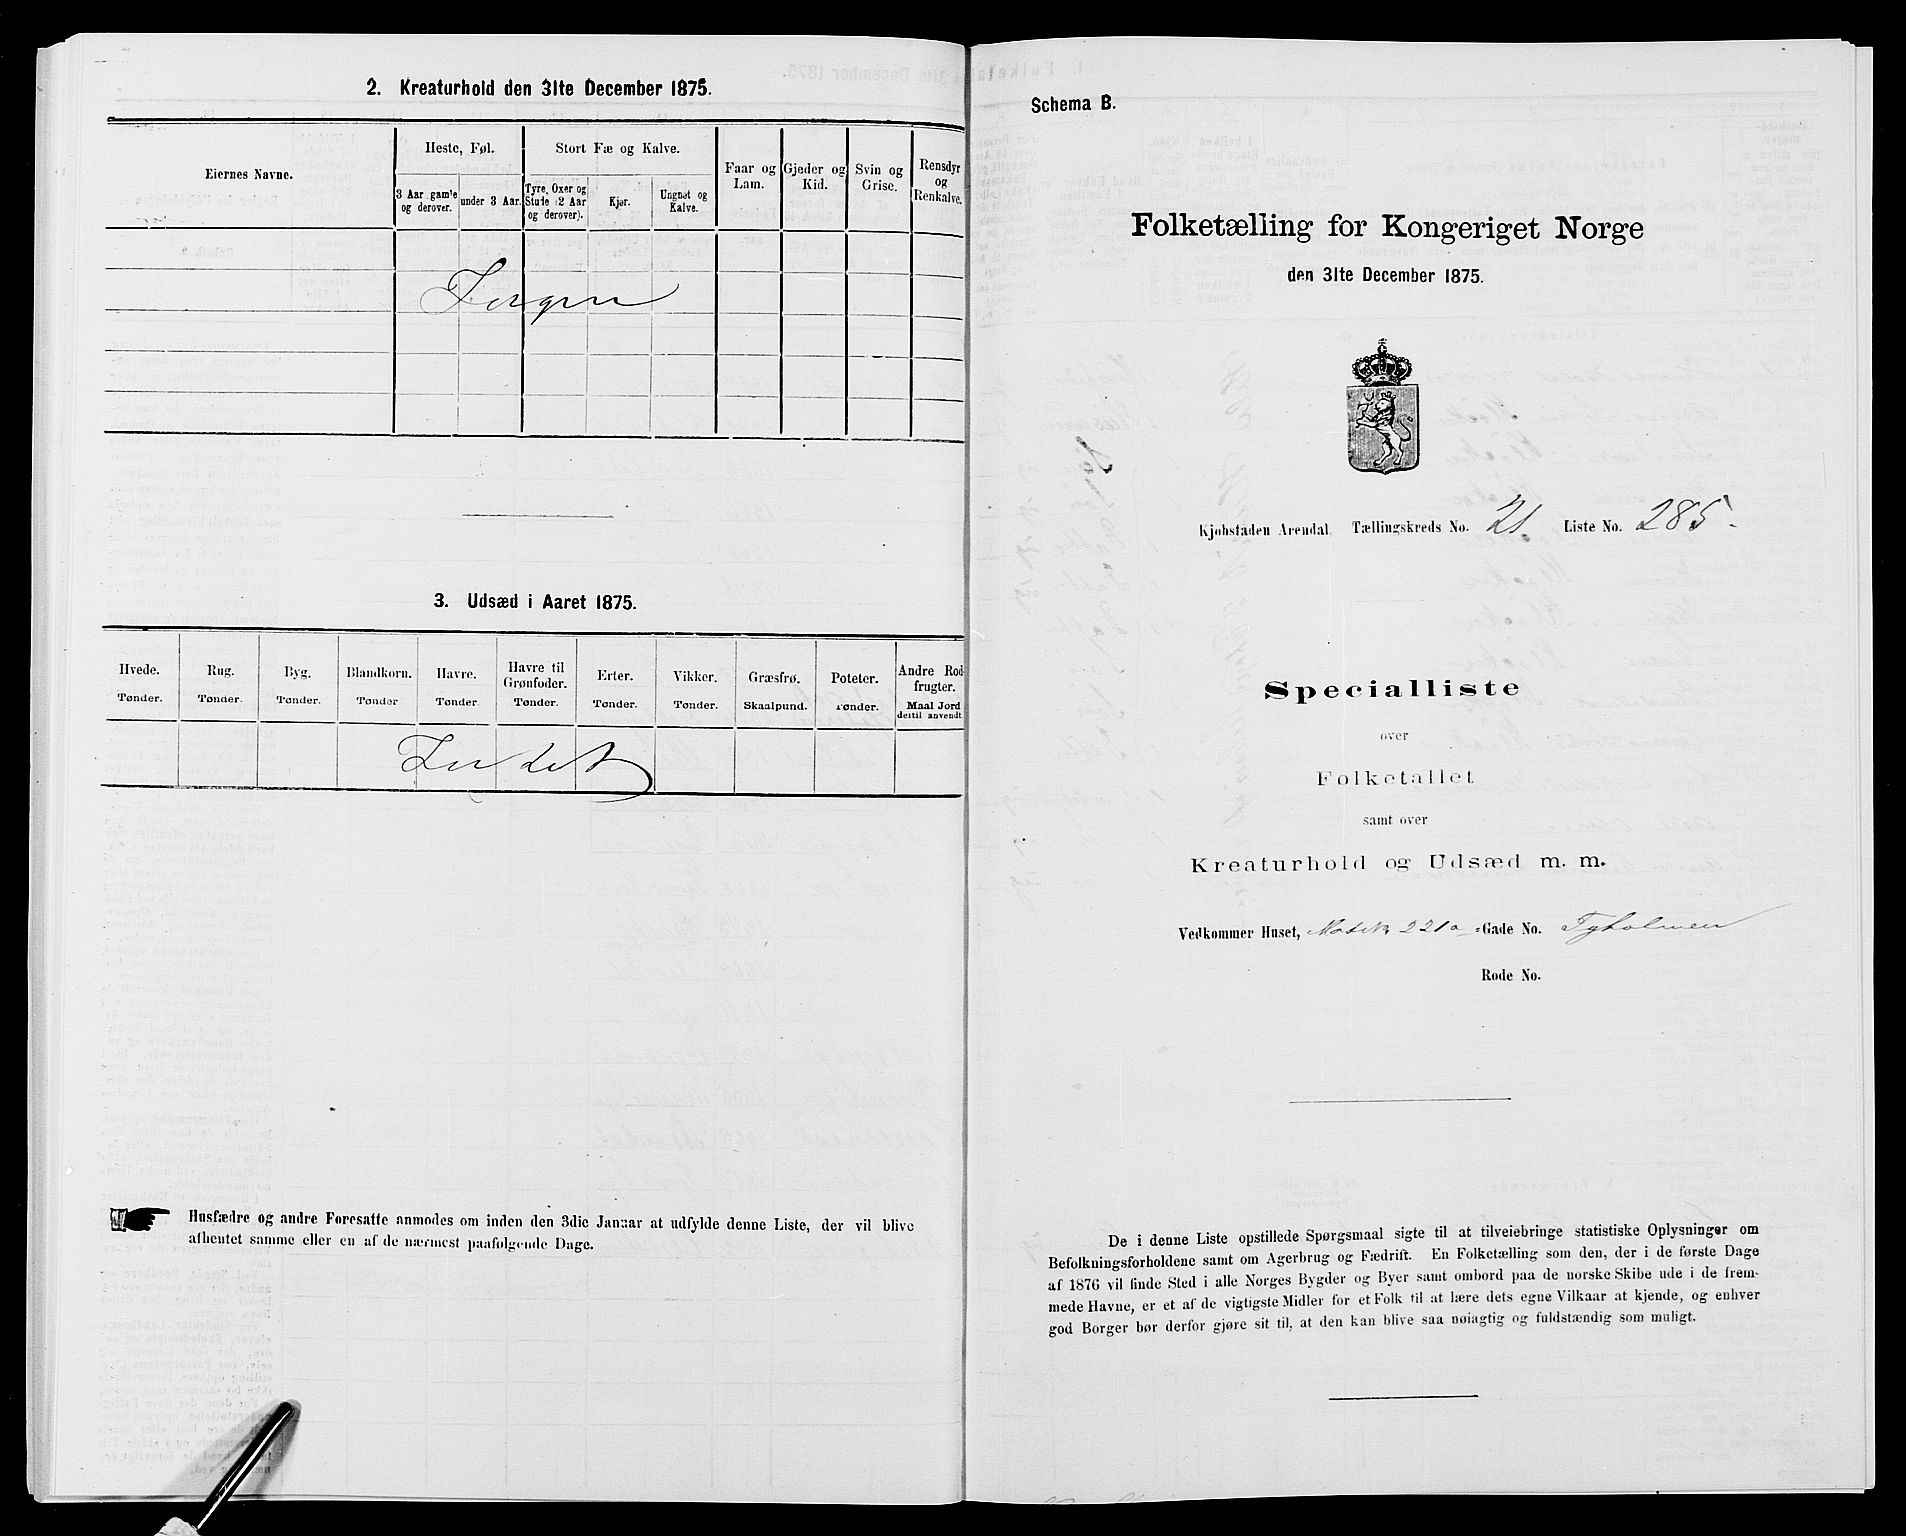 2. Kreaturhold den 31te December 1875.
Eiernes Navne.
Heste, Føl.
3 Aar gamle og derover.
under 3 Aar.
Stort Fæ og Kalve.
Tyre, Oxer og Stude (2 Aar og derover).
Kjør.
Ungnøt og Kalve.
Faar og Lam.
Gjeder og Kid.
Svin og Grise.
Rensdyr og Renkalve.
Ingen
3. Udsæd i Aaret 1875.
Hvede. Tønder.
Rug. Tønder.
Byg. Tønder.
Blandkorn. Tønder
Havre. Tønder.
Havre til Grønfoder. Tønder.
Erter. Tønder.
Vikker. Tønder.
Græsfrø. Skaalpund.
Poteter. Tønder.
Andre Rodfrugter. Maal Jord dertil anvendt.
Intet
Husfædre og andre Foresatte anmodes om inden den 3die Januar at udfylde denne Liste, der vil blive
afhentet samme eller en af de nærmest paafølgende Dage.
Schema B.
Folketælling for Kongeriget Norge
den 31te December 1875.
Kjøbstaden Arendal. Tællingskreds No. 21. Liste No. 285.
Specialliste
over
Folketallet
samt over
Kreaturhold og Udsæd m. m.
Vedkommer Huset, Matr. 221a Gade No. Tyholmen
Rode No.
De i denne Liste opstillede Spørgsmaal sigte til at tilveiebringe statistiske Oplysninger om
Befolkningsforholdene samt om Agerbrug og Fædrift. En Folketælling som den, der i de første Dage
af 1876 vil finde Sted i alle Norges Bygder og Byer samt ombord paa de norske Skibe ude i de frem-
mede Havne, er et af de vigtigste Midler for et Folk til at lære dets egne Vilkaar at kjende, og enhver
god Borger bør derfor gjøre sit til, at den kan blive saa nøiagtig og fuldstændig som muligt.